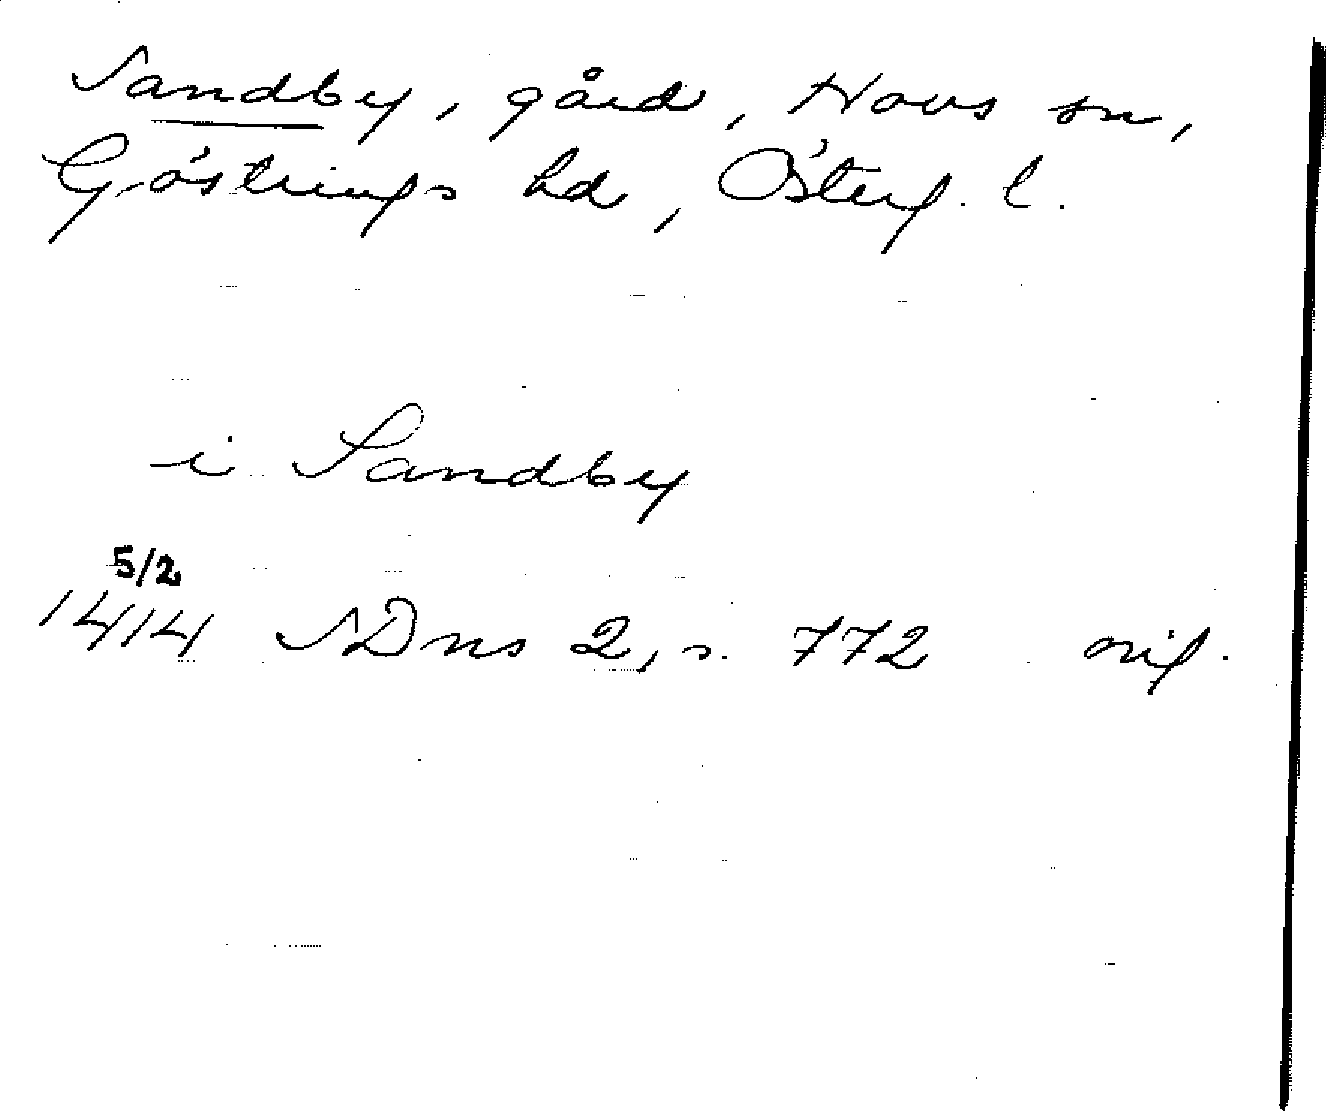 Sandby, gård, Hovs sn,
Göstrings hd, Österg. l.
i Sandby
5/2
1414 SDns 2, s. 772 orig.